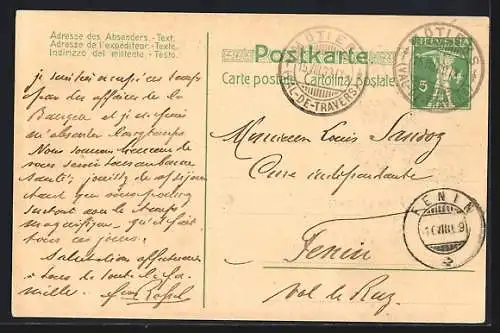 Adresse des Absenders.-Text.
Adresse de l'expéditeur.-Texte.
Indirizzo del mittente.-Testo.
Postkarte
Carte postale. Cartolina postale.
MOTIERS
VAL-DE-TRAVERS
MOTIERS
5
je suis très occupé ces temps
par des affaires de la
Banque et je ne puis
m'absenter longtemps
Nous sommes heureux de
vous savoir tous en bonne
santé; jouissez de
tant que
surtout avec le temps
magnifique qu'il fait
tous ces jours.
Salutations affectueuses
à tous de toute la fa-
mille.
Monsieur Louis Sandoz
Cure indépendante
Fenin
Val de Ruz
FENIN